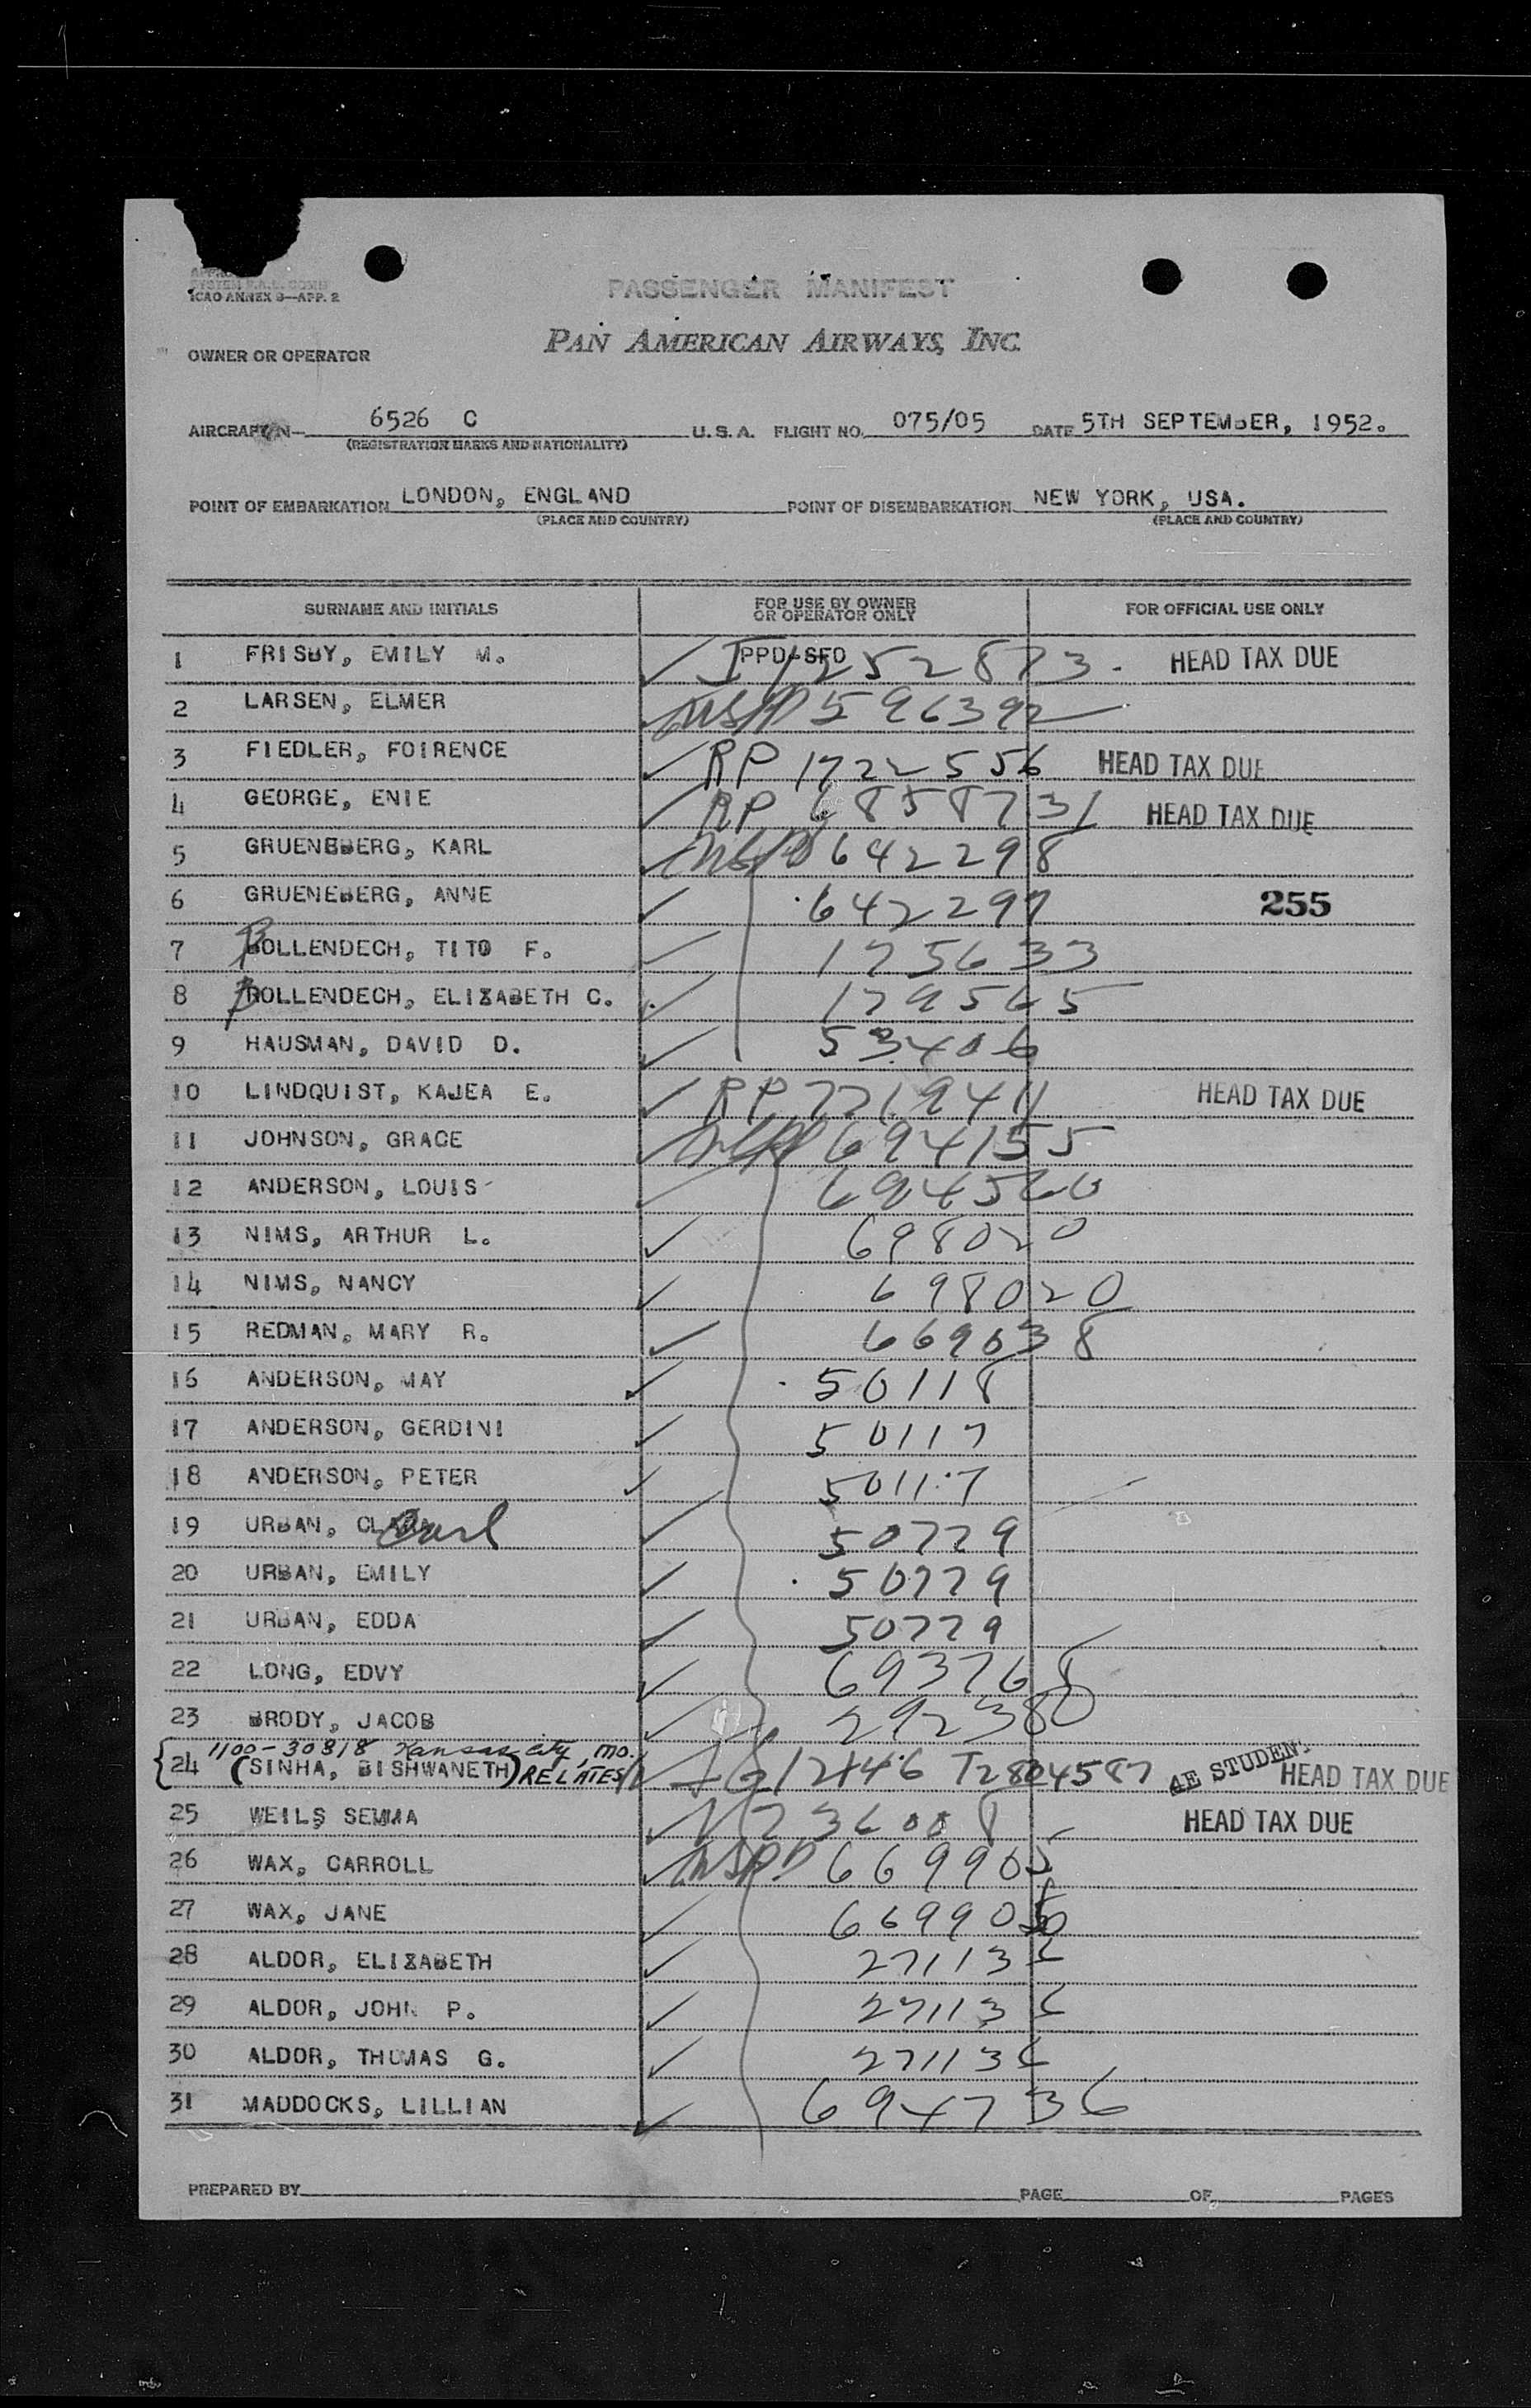 ICAO ANNEX 9—APP. 2
PASSENGER MANIFEST
PAN AMERICAN AIRWAYS, INC.
OWNER OR OPERATOR
AIRCRAFT N— 6526 C U.S.A. FLIGHT NO. 075/05 DATE 5TH SEPTEMBER, 1952.
(REGISTRATION MARKS AND NATIONALITY)
POINT OF EMBARKATION LONDON, ENGLAND POINT OF DISEMBARKATION NEW YORK, USA.
(PLACE AND COUNTRY) (PLACE AND COUNTRY)
SURNAME AND INITIALS FOR USE BY OWNER OR OPERATOR ONLY FOR OFFICIAL USE ONLY
1 FRISBY, EMILY M. PPD-SFO I 1252873 HEAD TAX DUE
2 LARSEN, ELMER USPP 596392
3 FIEDLER, FOIRENCE RP 1722556 HEAD TAX DUE
4 GEORGE, ENIE RP 6858731 HEAD TAX DUE
5 GRUENEBERG, KARL 642298
6 GRUENEBERG, ANNE 642297 255
7 BOLLENDECH, TITO F. 175633
8 BOLLENDECH, ELIZABETH C. 179565
9 HAUSMAN, DAVID D. 53406
10 LINDQUIST, KAJEA E. RP 7719411 HEAD TAX DUE
11 JOHNSON, GRACE 694155
12 ANDERSON, LOUIS 694560
13 NIMS, ARTHUR L. 698020
14 NIMS, NANCY 698020
15 REDMAN, MARY R. 669038
16 ANDERSON, MAY 50118
17 ANDERSON, GERDINI 50117
18 ANDERSON, PETER 50117
19 URBAN, Carl 50779
20 URBAN, EMILY 50779
21 URBAN, EDDA 50779
22 LONG, EDVY 693768
23 BRODY, JACOB 292380
1100-30818 Kansas City, Mo.
24 (SINHA, BISHWANETH) RELATES 12146 T2804587 4E STUDENT HEAD TAX DUE
25 WEILS SEMMA V 736008 HEAD TAX DUE
26 WAX, CARROLL USPP 669905
27 WAX, JANE 669905
28 ALDOR, ELIZABETH 271136
29 ALDOR, JOHN P. 271136
30 ALDOR, THOMAS G. 271136
31 MADDOCKS, LILLIAN 694736
PREPARED BY PAGE OF PAGES